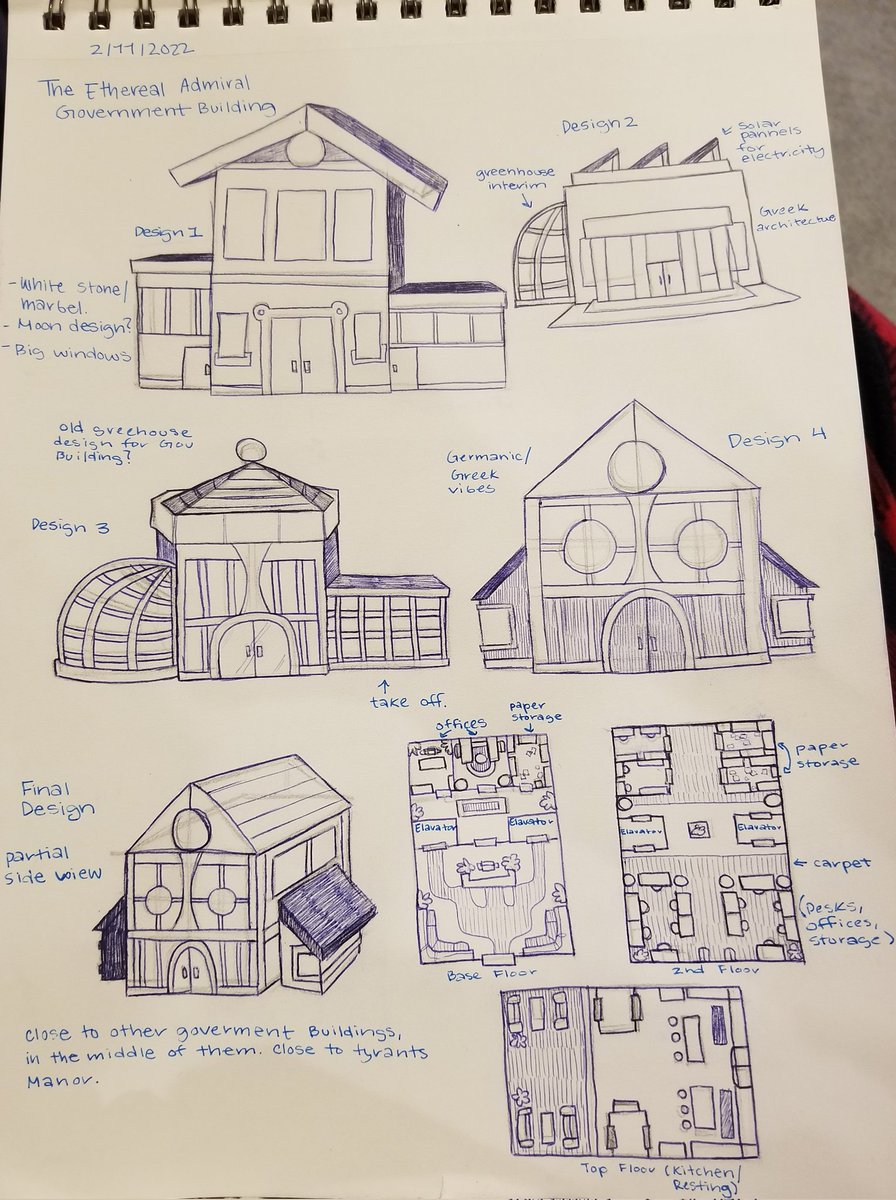 2/11/2022
The Ethereal Admiral
Government Building
Design 1
- White stone/
marbel.
- Moon design?
- Big windows
Design 2
solar
pannels
for
electricity
greenhouse
interim
Greek
architectue
old greehouse
design for Gov
Building?
Design 3
take off.
Germanic/
Greek
vibes
Design 4
Final
Design
partial
side view
offices
paper
storage
Elavator
Elavator
Base Floor
paper
storage
Elavator
Elavator
carpet
(Desks,
offices,
storage)
2nd Floor
close to other goverment Buildings,
in the middle of them. close to tyrants
Manor.
Top Floor (Kitchen/
Resting)